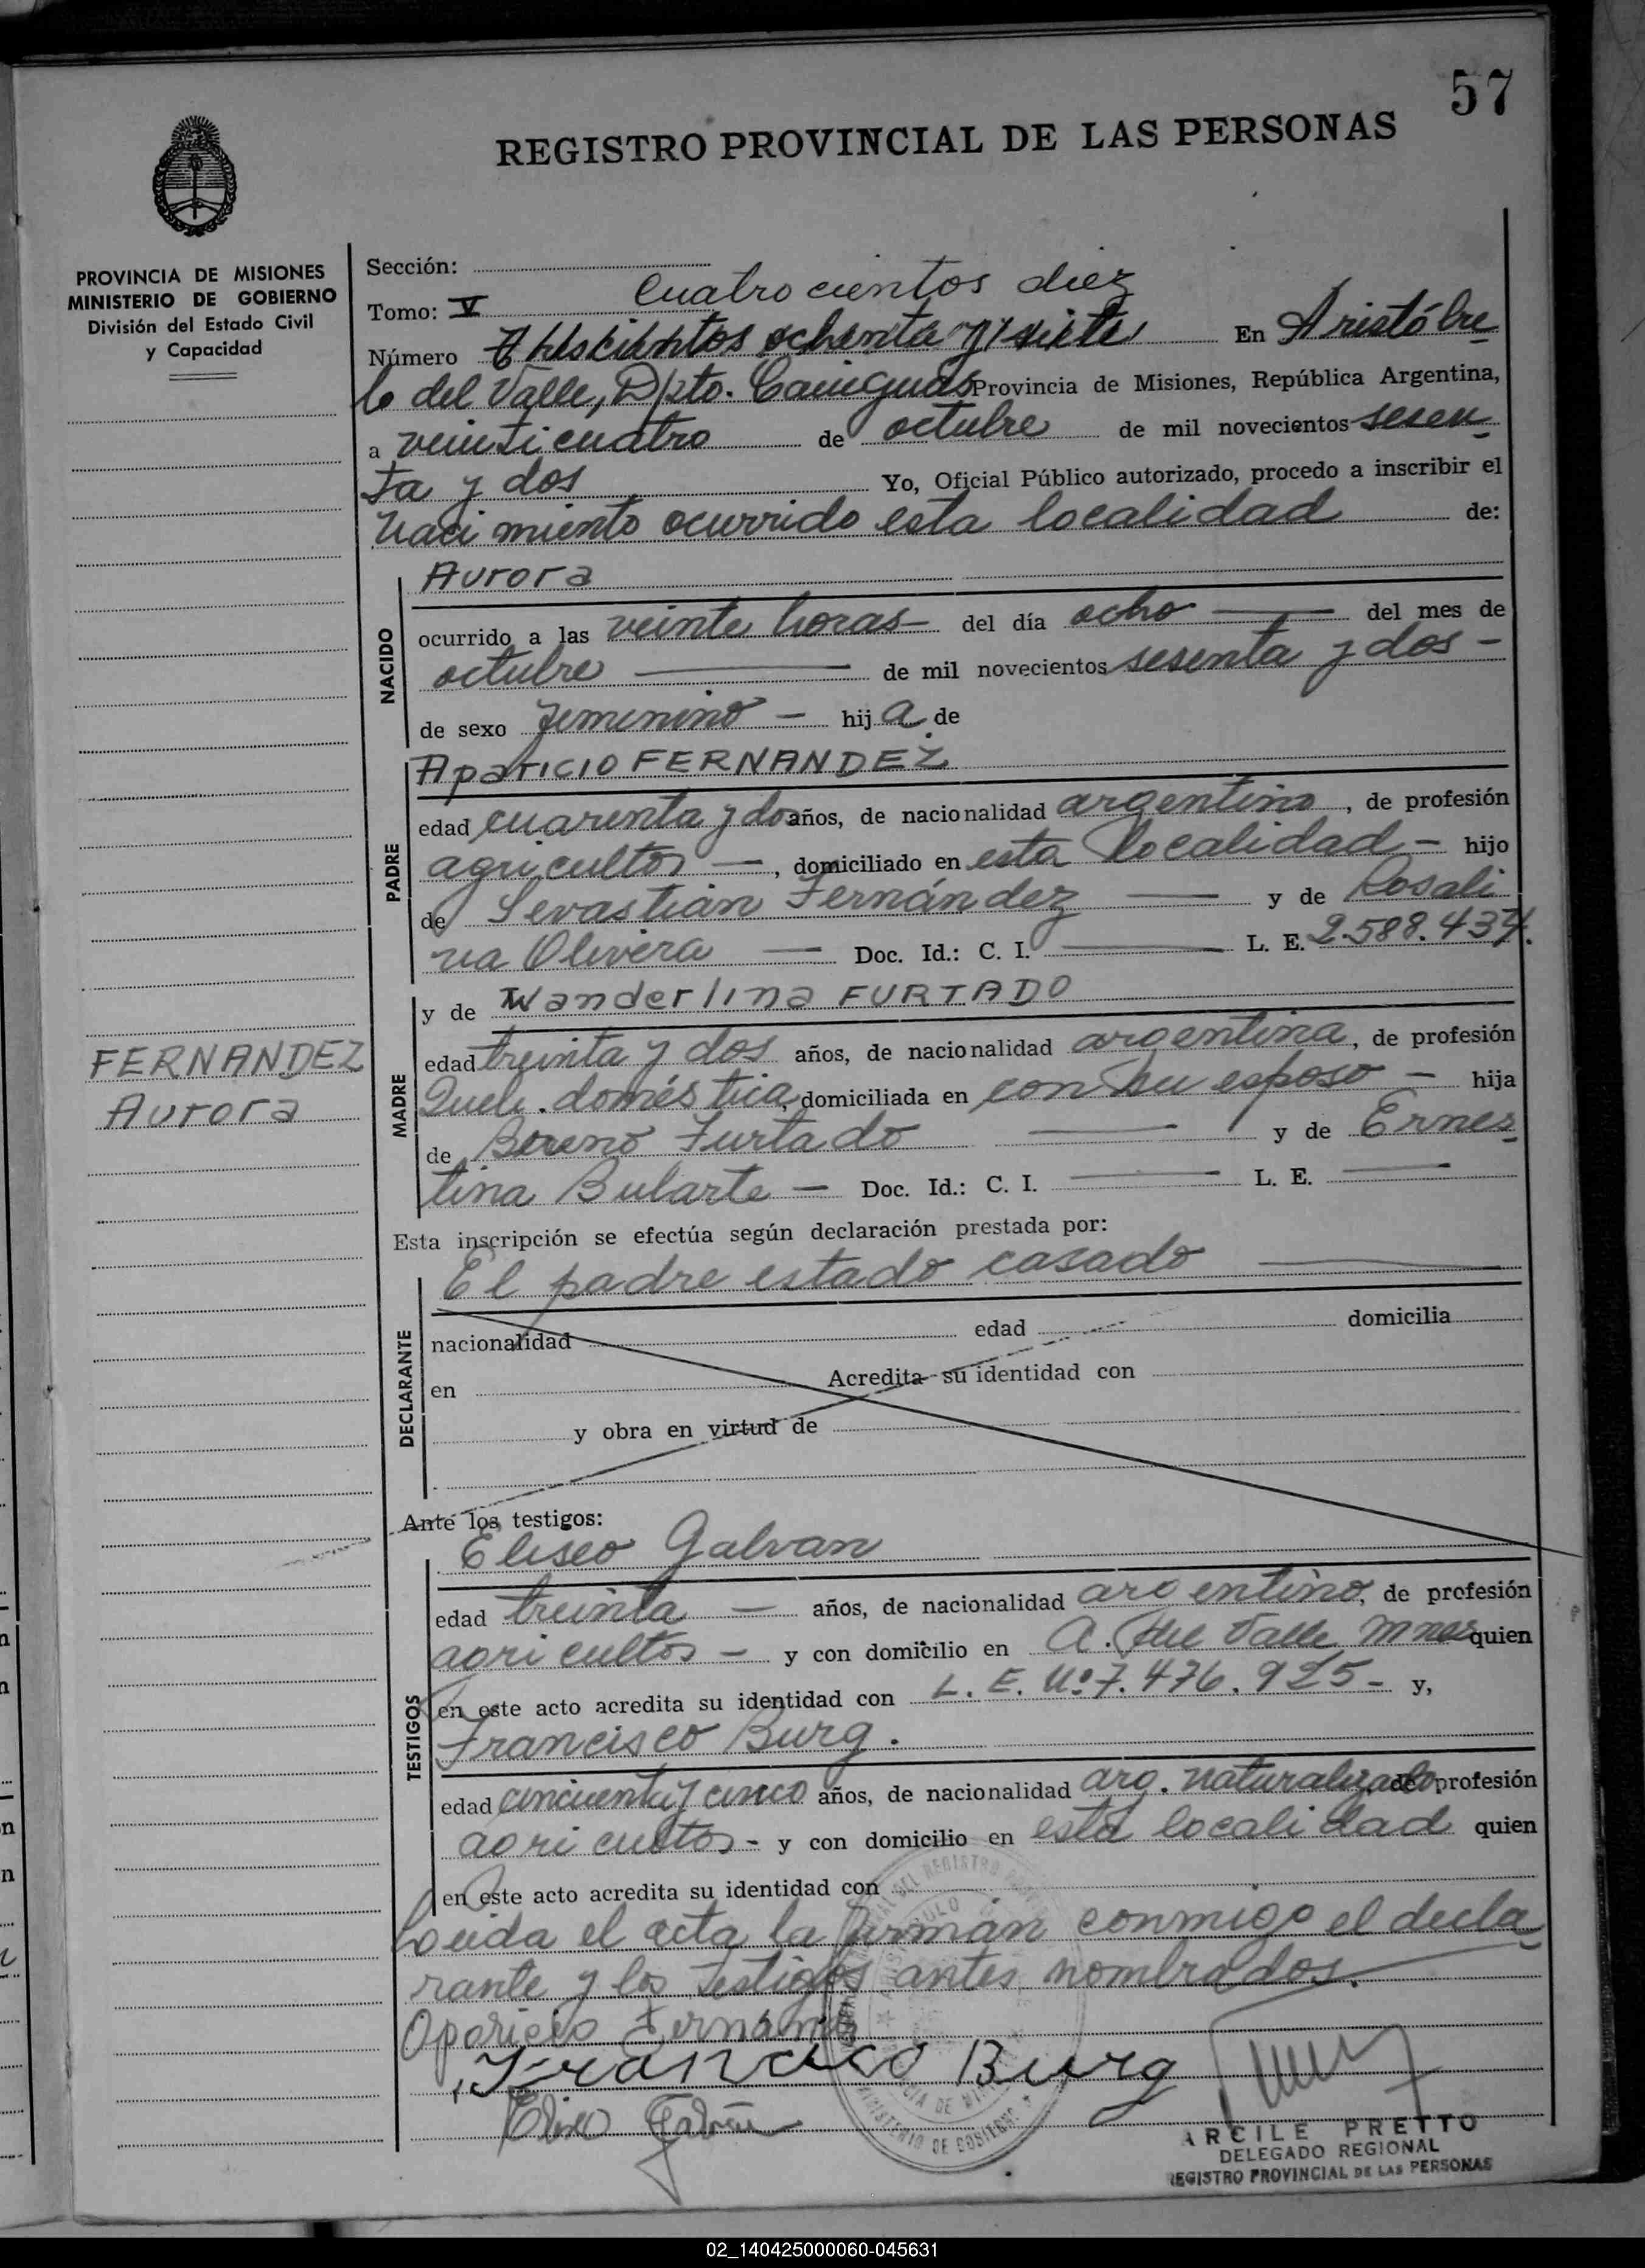 57
REGISTRO PROVINCIAL DE LAS PERSONAS
PROVINCIA DE MISIONES
MINISTERIO DE GOBIERNO
División del Estado Civil
y Capacidad
Sección:
Cuatrocientos diez
Tomo: V
Número Trescientos ochenta y siete En Aristóbu-
lo del Valle, Dpto. Cainguás Provincia de Misiones, República Argentina,
a veinticuatro de octubre de mil novecientos sesen-
ta y dos Yo, Oficial Público autorizado, procedo a inscribir el
Nacimiento ocurrido esta localidad de:
NACIDO
Aurora
ocurrido a las veinte horas — del día ocho — del mes de
octubre — de mil novecientos sesenta y dos —
de sexo femenino — hija de
PADRE
Aparicio FERNANDEZ
edad cuarenta y dos años, de nacionalidad argentino, de profesión
agricultor —, domiciliado en esta localidad — hijo
de Sevastián Fernández — y de Rosali
na Olivera — Doc. Id.: C. I. — L. E. 2.588.434.
MADRE
y de Wanderlina FURTADO
edad treinta y dos años, de nacionalidad argentina, de profesión
Queh. doméstica, domiciliada en con su esposo — hija
de Furtado — y de Ernes-
tina Bularte — Doc. Id.: C. I. — L. E. —
FERNANDEZ
Aurora
Esta inscripción se efectúa según declaración prestada por:
DECLARANTE
El padre estado casado —
nacionalidad edad domicilia
en Acredita su identidad con
y obra en virtud de
Ante los testigos:
TESTIGOS
Eliseo Galvan
edad treinta — años, de nacionalidad argentino, de profesión
agricultor — y con domicilio en A. del Valle Mnes quien
en este acto acredita su identidad con L. E. Nº 7.476.925 - y,
Francisco Burg.
edad cincuenta y cinco años, de nacionalidad arg. naturalizado, de profesión
agricultor - y con domicilio en esta localidad quien
en este acto acredita su identidad con
Leida el acta la firman conmigo el decla
rante y los testigos antes nombrados.
Aparicio
Francisco Burg
Eliseo Galván
ARCILE PRETTO
DELEGADO REGIONAL
REGISTRO PROVINCIAL DE LAS PERSONAS
02_140425000060-045631